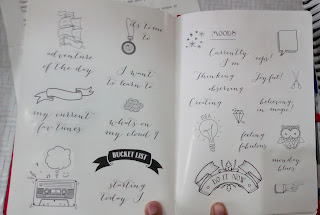 it's time
to
adventure
of the day
I want
to learn to
my current
fav tunes
what's on
my cloud 9
BUCKET LIST
starting
today I
MOODS
Currently
I'm
oops!
Thinking
Joyful!
observing
Creating
believing
in magic
IDEA
feeling
fabulous
monday
blues
DO IT NOW